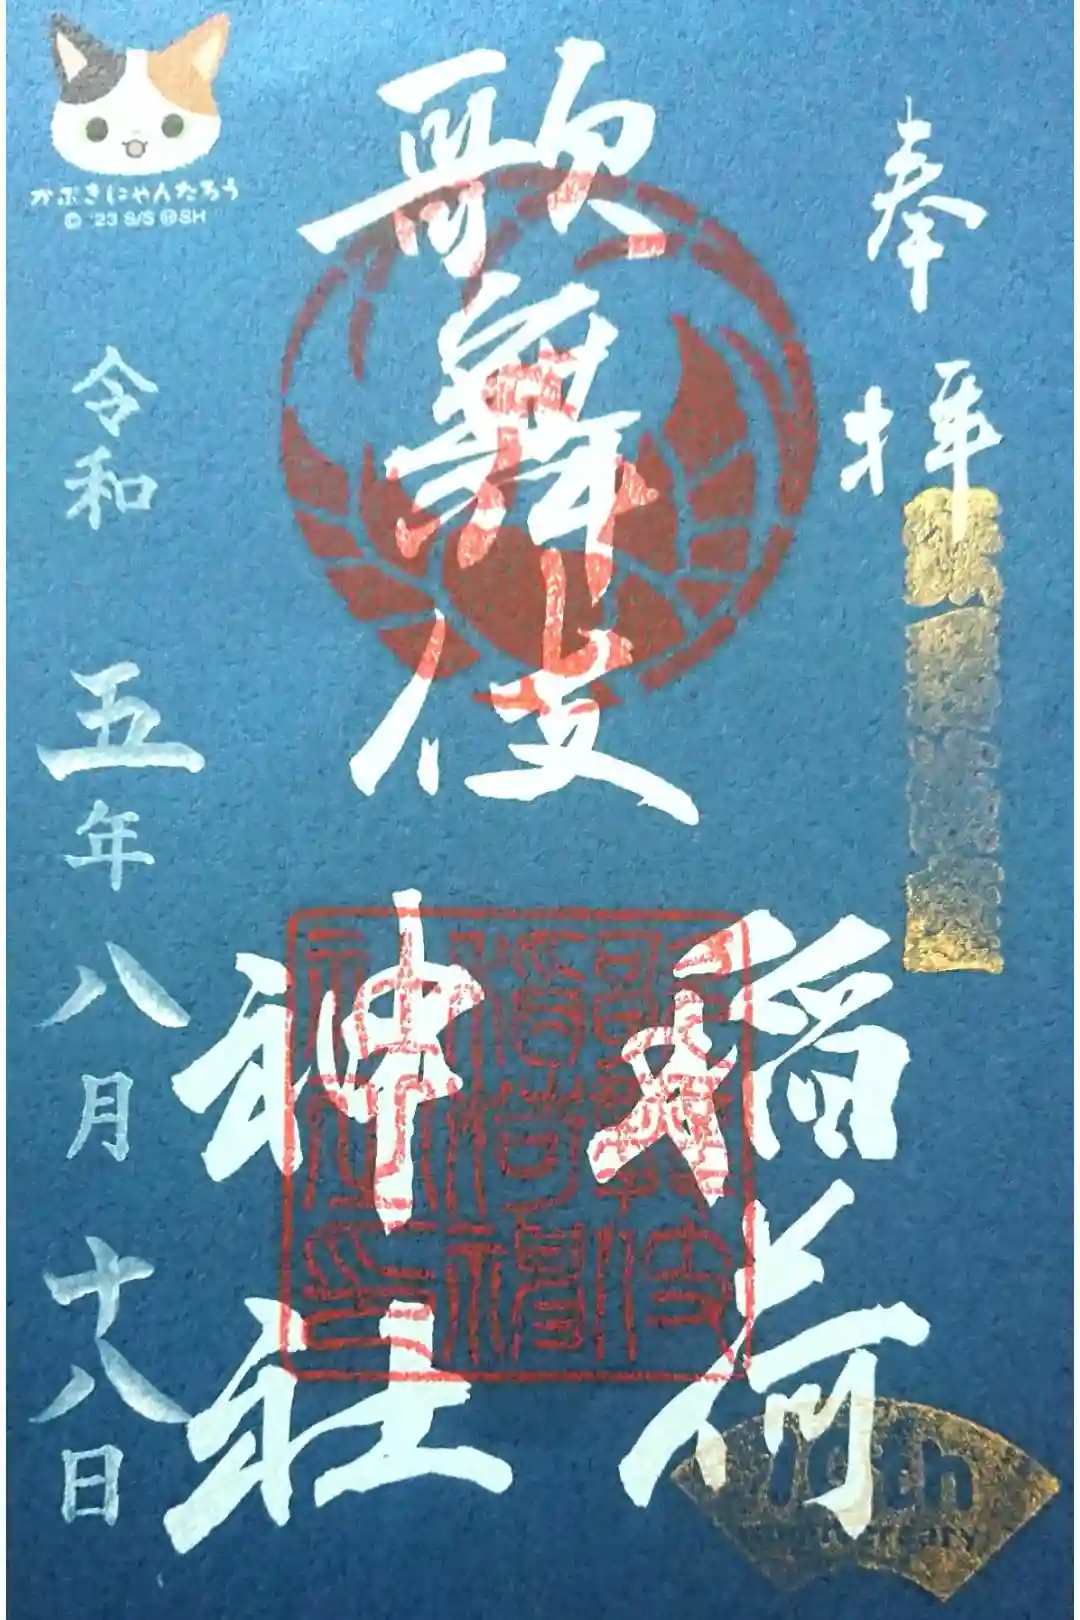 奉拝
歌舞伎
稲荷
神社
歌舞伎
稲荷神
社之印
10th
anniversary
かぶきにゃんたろう
© '23 S/S Ⓗ SH
令和五年八月十八日